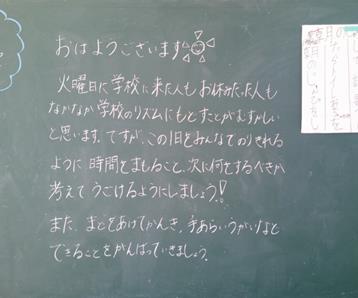 おはようございます
火曜日に学校に来た人もお休みだった人も
なかなか学校のリズムにもどすことがむずかしい
と思います。ですが、この1日をみんなでのりきれる
ように時間をまもること、次に何をするべきか
考えてうごけるようにしましょう!
また、まどをあけてかんき、手あらいうがいなど
できることをがんばっていきましょう。